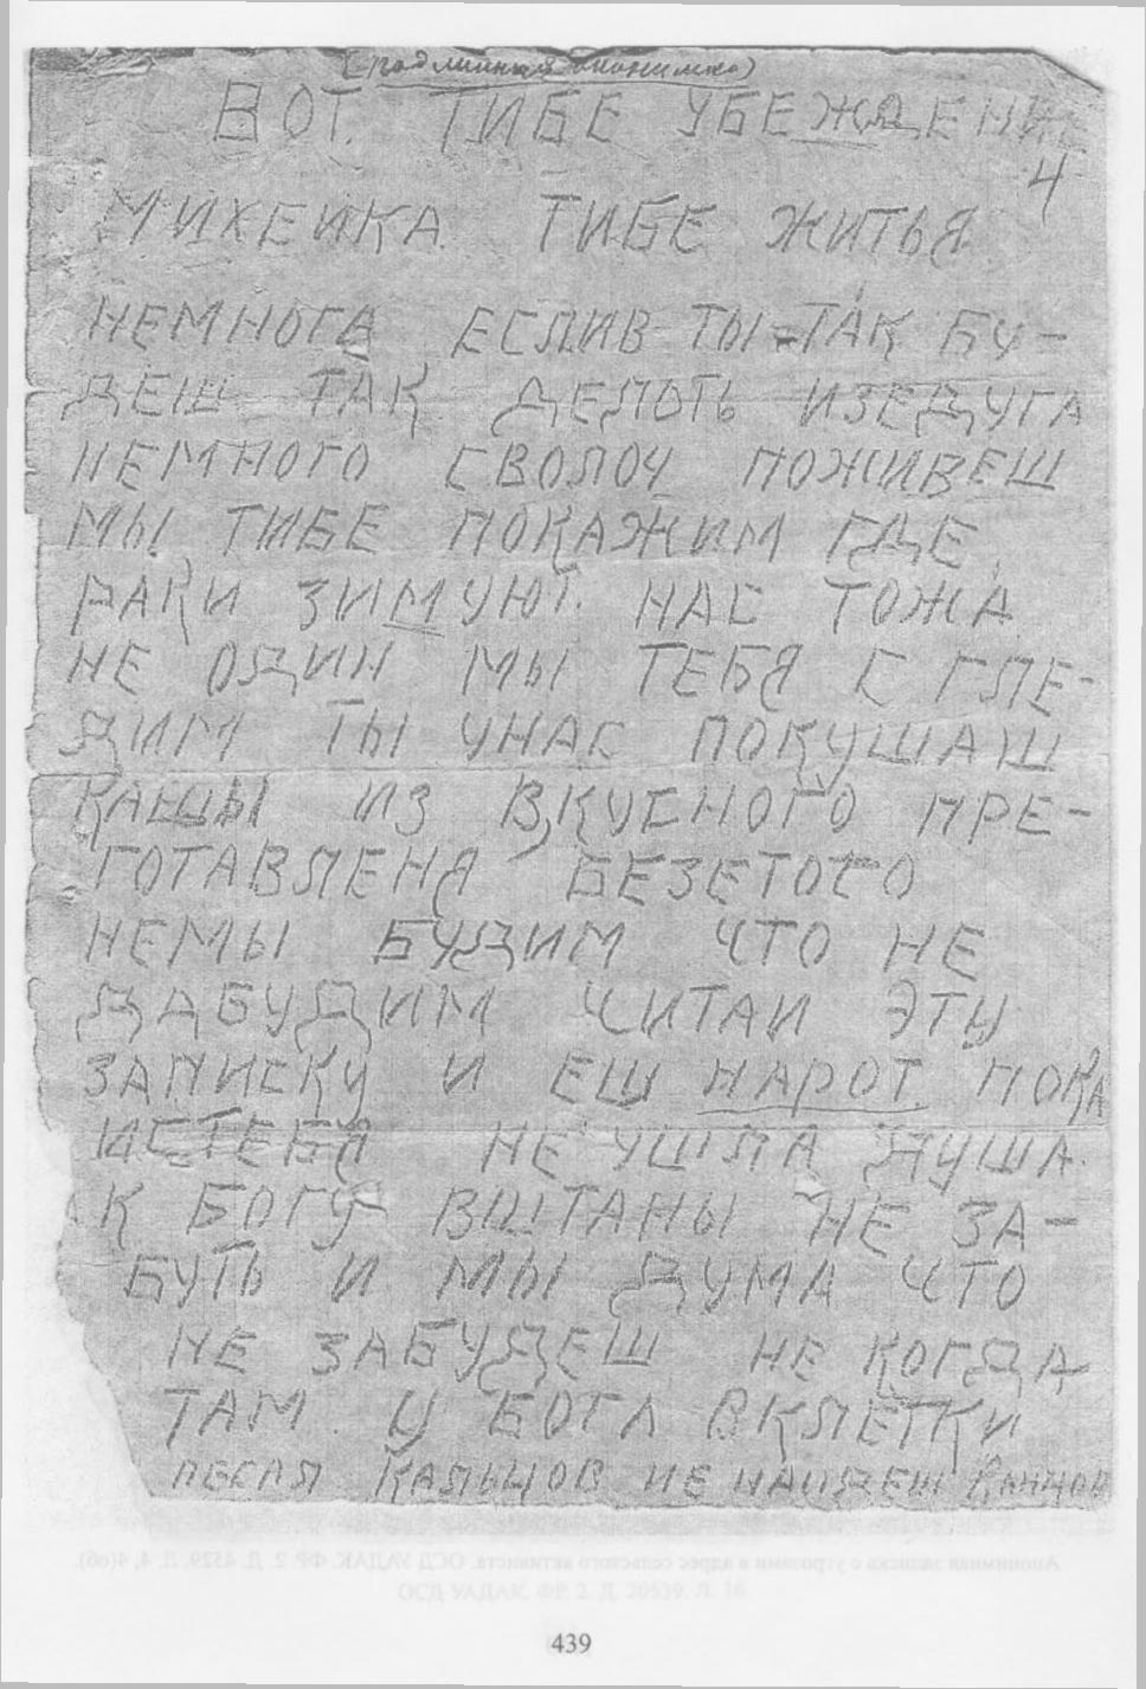 (подлинная анонимка)
ВОТ. ТИБЕ УБЕЖДЕНИ
4
МИХЕИКА. ТИБЕ ЖИТЬЯ
НЕМНОГА ЕСЛИВ ТЫ ТАК БУ-
ДЕШ ТАК ДЕЛОТЬ ИЗЕДУГА
НЕМНОГО СВОЛОЧ ПОЖИВЕШ
МЫ ТИБЕ ПОКАЖИМ ГДЕ
РАКИ ЗИМУЮТ. НАС ТОЖА
НЕ ОДИН МЫ ТЕБЯ С ГЛЕ-
ДИМ ТЫ УНАС ПОКУШАИШ
КАШЫ ИЗ ВКУСНОГО ПРЕ-
ГОТАВЛЕНЯ БЕЗЕТОГО
НЕМЫ БУДИМ ЧТО НЕ
ДАБУДИМ ЧИТАИ ЭТУ
ЗАПИСКУ И ЕШ НАРОТ. ПОКА
ИСТЕБЯ НЕ УШЛА ДУША.
К БОГУ ВШТАНЫ НЕ ЗА-
БУТЬ И МЫ ДУМА ЧТО
НЕ ЗАБУДЕШ НЕ КОГДА
ТАМ. У БОГА ВКЛЕТКИ
ПЕСЛЯ КАЛЬЦОВ НЕ НАИДЕШ КАНЦОВ
Анонимная записка с угрозами в адрес сельского активиста. ОСД УАДАК. ФР. 2. Д. 4529. Л. 4, 4(об).
ОСД УАДАК. ФР. 2. Д. 20539. Л. 16.
439